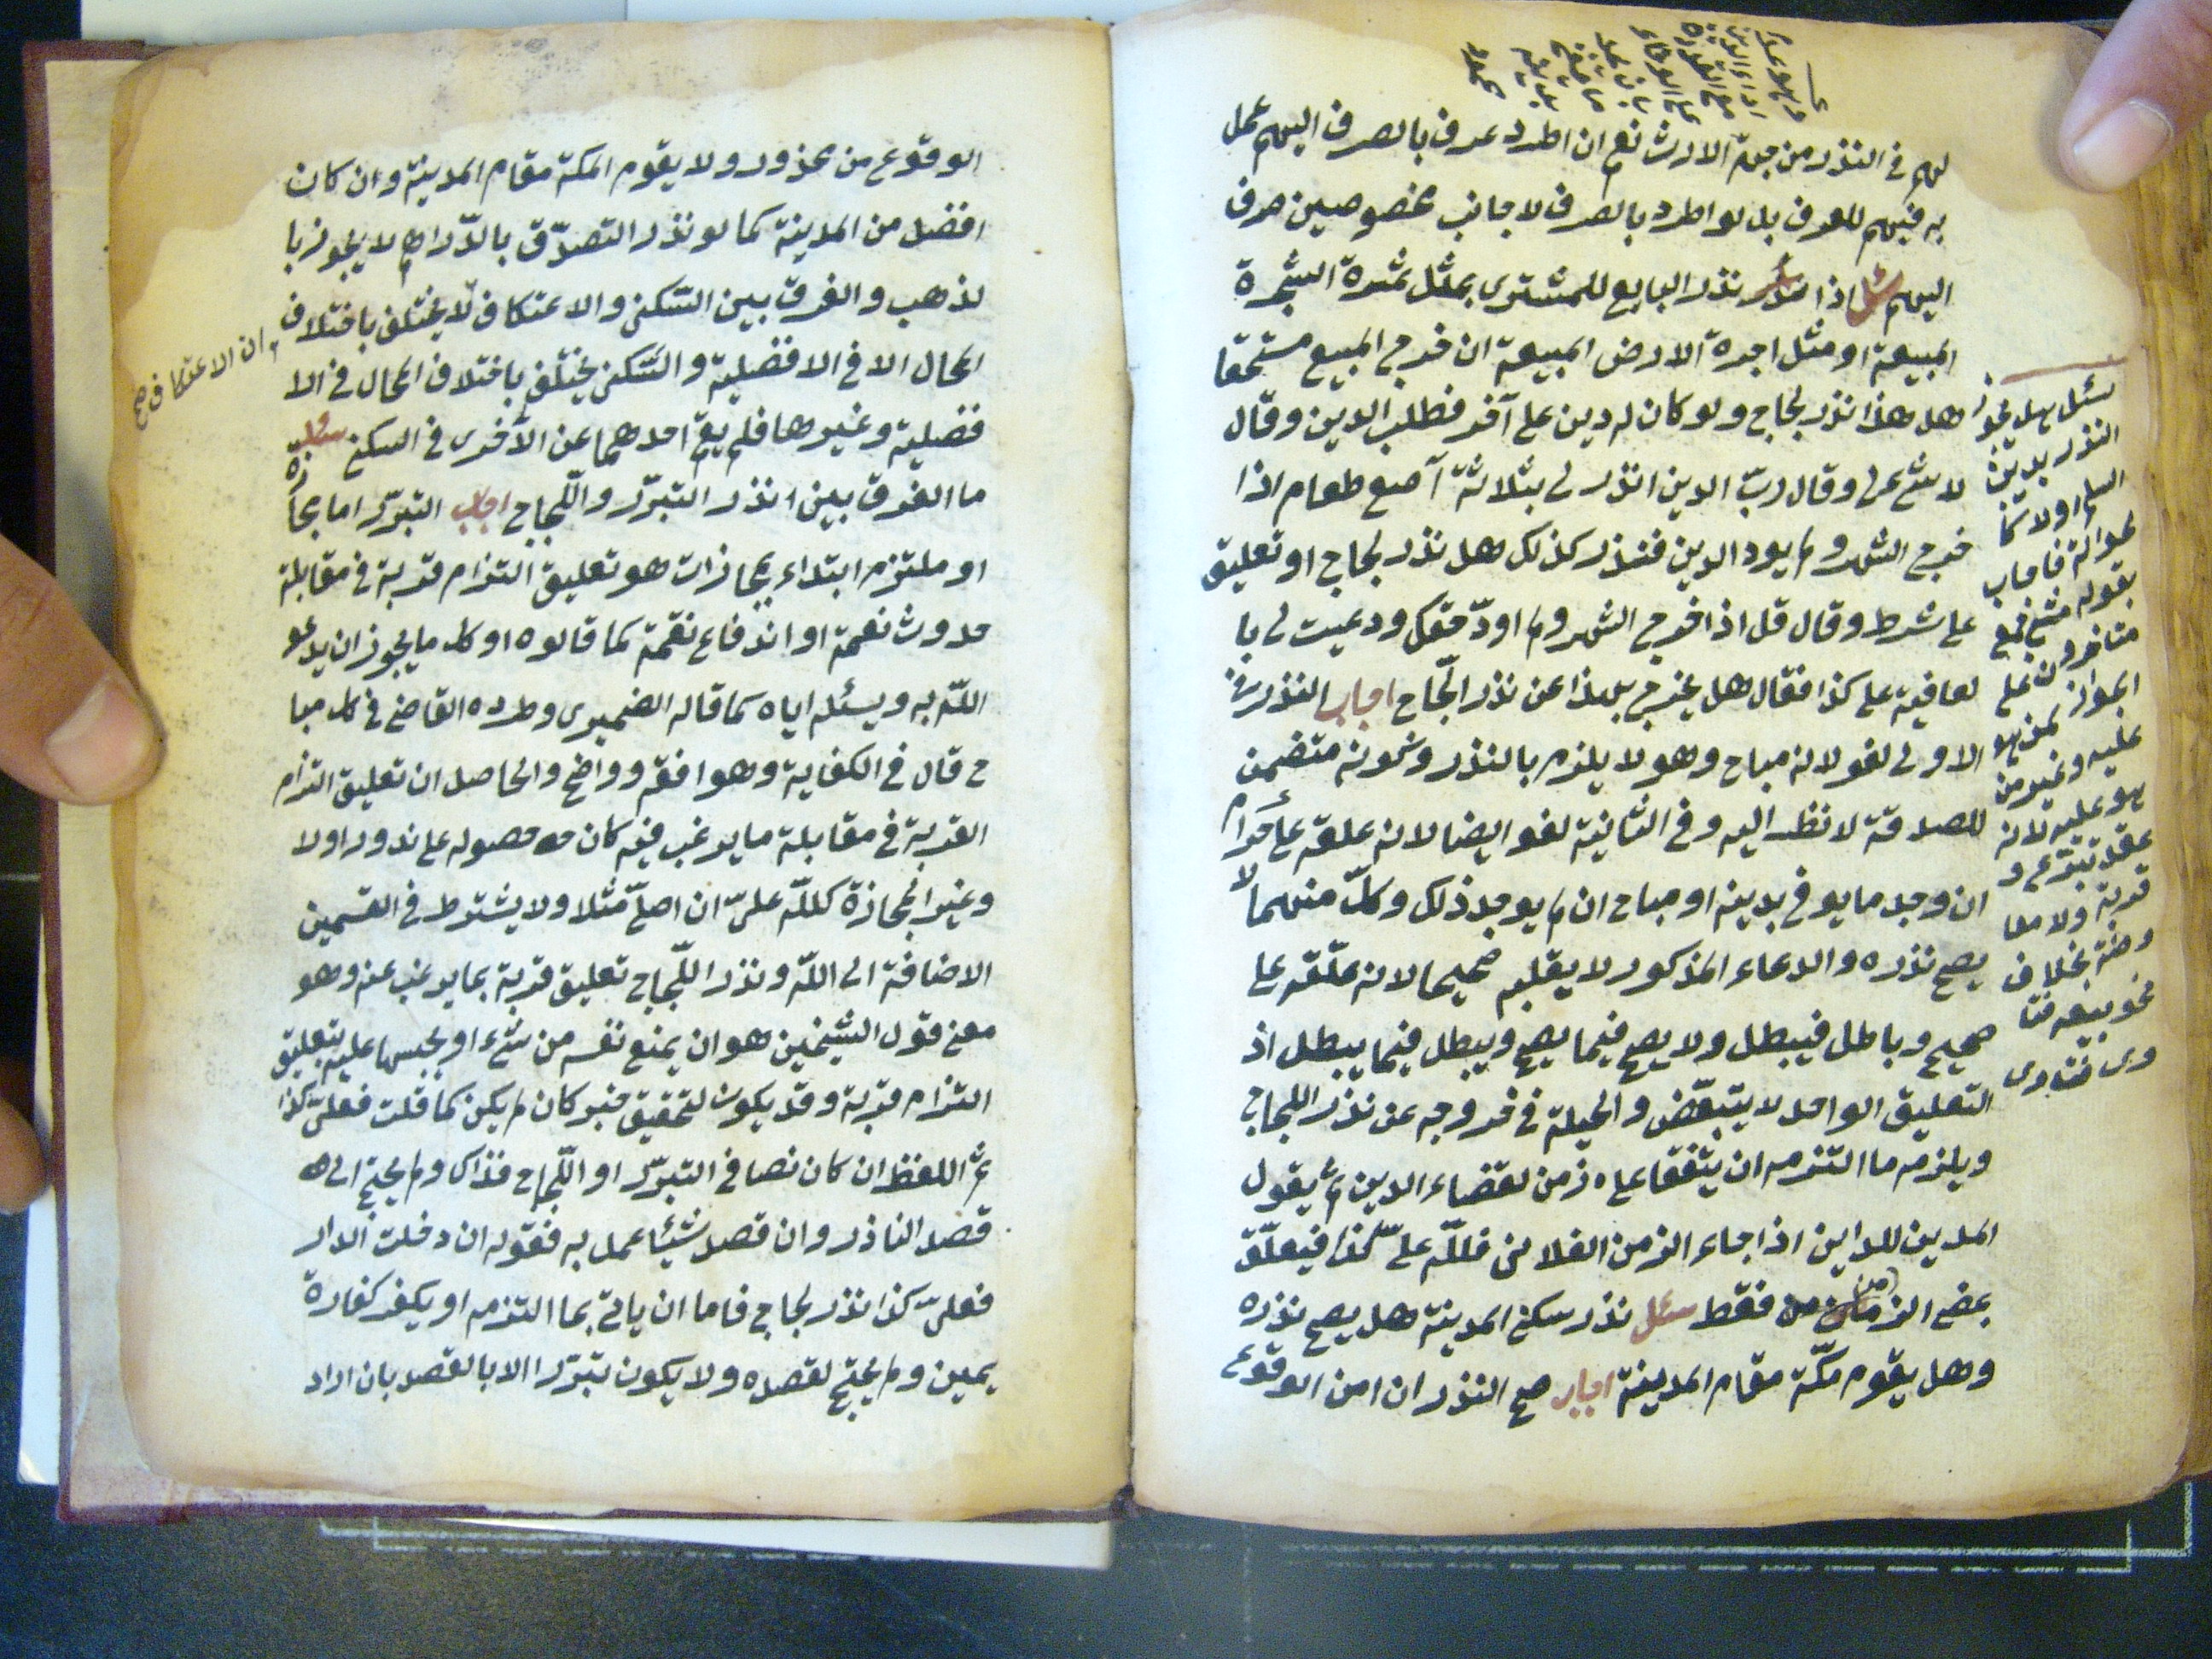 لهم في النذر من جهة الارث نعم ان اطرد عرف بالصرف اليهم عمل
به فيهم للعرف بل لو اطرد بالصرف لاجانب مخصوصين صرف
اليهم سئل اذا نذر البايع للمشتري بمثل ثمرة الشجرة
المبيعة او مثل اجرة الارض المبيعة ان خرج المبيع مستحقا
هل هذا نذر لجاج ولو كان له دين على آخر فطلب الدين وقال
لا شئ معي وقال ربّ الدين انذر لي بثلاثة آصع طعام اذا
خرج الشهر ولم يود الدين فنذر كذلك هل نذر لجاج او تعليق
على شرط وقال قل اذا خرج الشهر ولم اودّ حقك ودعيت لي با
لعافية على كذا فقال هل يخرج بهذا عن نذر اللجاج اجاب النذر في
الاولى لغو لانه مباح وهو لا يلزم بالنذر وكونه متضمن
للصدقة لا نظر اليه وفي الثانية لغو ايضا لانه علقه على حرام
ان وجد ما يوفي بدينه او مباح ان لم يوجد ذلك وكلّ منهما لا
يصح نذره والدعاء المذكور لا يقلبه صحيحا لانه علّقه على
صحيح وباطل فيبطل ولا يصح فيما يصح ويبطل فيما يبطل اذ
التعليق الواحد لا يتبعّض والحيلة في خروجه عن نذر اللجاج
ويلزمه ما التزمه ان يتفقا على زمن لقضاء الدين ثم يقول
المدين للداين اذا جاء الزمن الفلاني فللّه عليّ كذا فيعلّق
بمضي الزمن فقط سئل نذر سكنى المدينة هل يصح نذره
وهل يقوم مكّة مقام المدينة اجاب صح النذر ان امن الوقوع
سئل هل يجوز
النذر بدين
السلم او لا كا
لحوالة فاجاب
بقوله
متاخرون على
الجواز لمن هو
عليه وغير من
هو عليه لانه
عقد تبرع و
قربة ولا معا
وضة بخلاف
نحو بيعه فتا
وى
الوقوع من محذور ولا يقوم المكة مقام المدينة وان كان
افضل من المدينة كما لو نذر التصدّق بالدّراهم لا يجوز با
لذهب والفرق بين السّكنى والاعتكاف لا يختلف باختلاف
ان الاعتكاف صح
المحال الا في الافضلية والسّكنى يختلف باختلاف المحال في الا
فضلية وغيرها فلم يقم احدهما عن الآخرى في السكنى سئل
ما الفرق بين نذر التبرّر واللّجاج اجاب التبرّر اما مجازة
او ملتزم ابتداء بمجازات هو تعليق التزام قربة في مقابلة
حدوث نعمة او اندفاع نقمة كما قالوه او كل ما يجوز ان يدعو
اللّه به ويسئله اياه كما قاله الضميري وطرده القاضي في كل مبا
ح قال في الكفاية وهو افقه وواضح والحاصل ان تعليق التزام
القربة في مقابلة ما يرغب فيه كان حصوله على ندور اولا
وغير المجازة كللّه عليّ ان اصلّي مثلا ولا يشترط في القسمين
الاضافة الى اللّه ونذر اللّجاج تعليق قربة بما يرغب عنه وهو
معنى قول الشيخين هو ان يمنع نفسه من شئ او يحبسها عليه بتعليق
التزام قربة وقد يكون لتحقيق خبر كان لم يكن كما قلت فعليّ كذا
ثم اللفظ ان كان نصا في التبرّر او اللّجاج فذاك ولم يحتج الى
قصد الناذر وان قصد شيئا عمل به فقوله ان دخلت الدار
فعليّ كذا نذر لجاج فاما ان ياتي بما التزمه او يكفر كفارة
يمين ولم يحتج لقصده ولا يكون تبرّرا الا بالقصد بان اراد